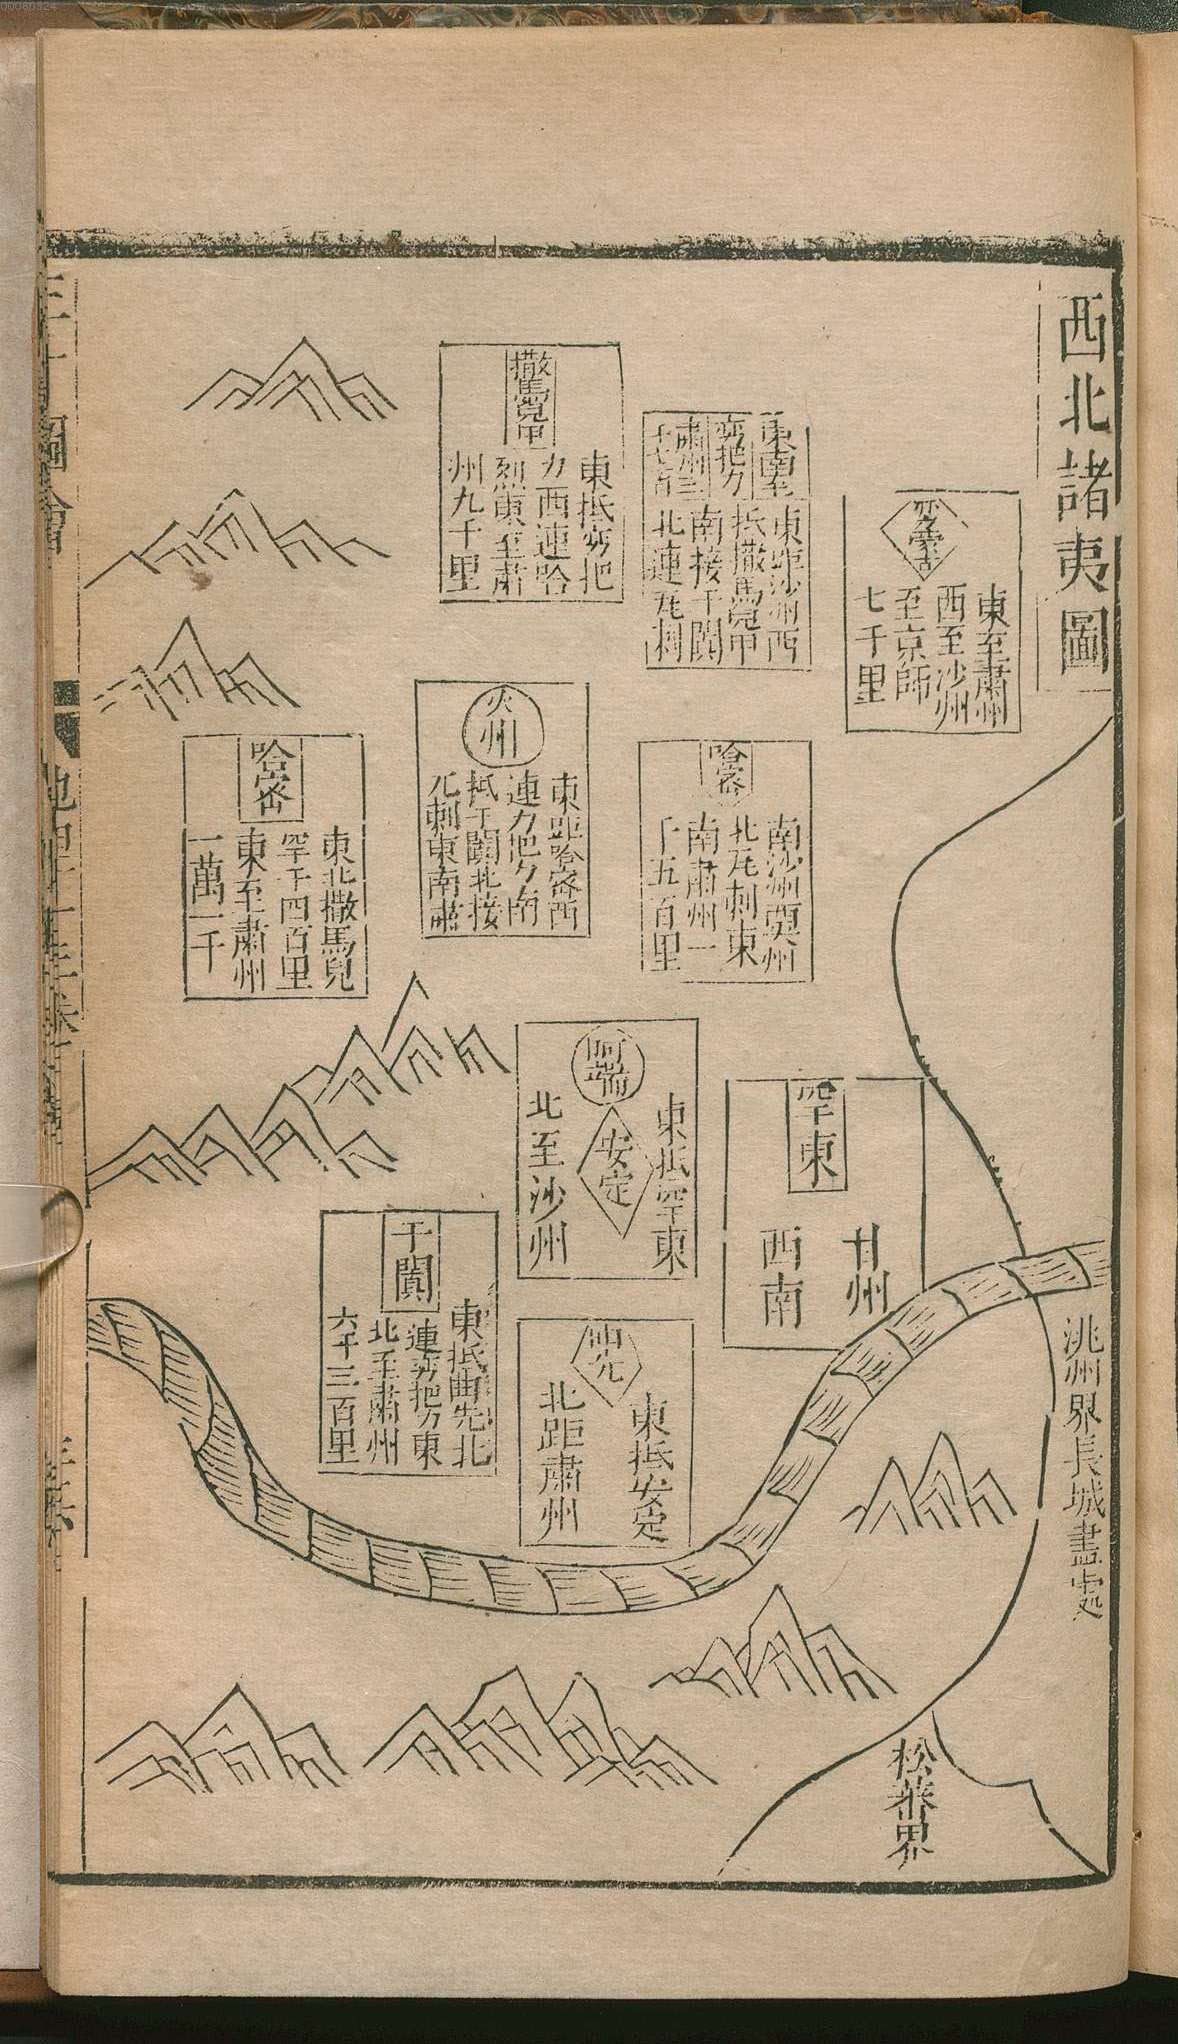 00080324
西北諸夷圖
蒙古
東至肅州
西至沙州
至京師
七千里
東南至
肅州三
東距沙州西
抵撒馬兒甲
南接于闐
北連瓦剌
撒馬兒甲
東抵亦把
力西連哈
烈東至肅
州九千里
哈密
南沙州
北瓦剌東
南肅州一
千五百里
火州
東距哈密西
連力把夕南
抵于闐北接
瓦剌東南肅
哈密
東北撒馬兒
罕千四百里
東至肅州
一萬一千
罕東
甘州
西南
阿端
安定
東抵罕東
北至沙州
曲先
東抵安定
北距肅州
于闐
東抵曲先北
連亦把力東
北至肅州
六千三百里
洮州界長城盡處
松界
三才圖會
地理十三卷